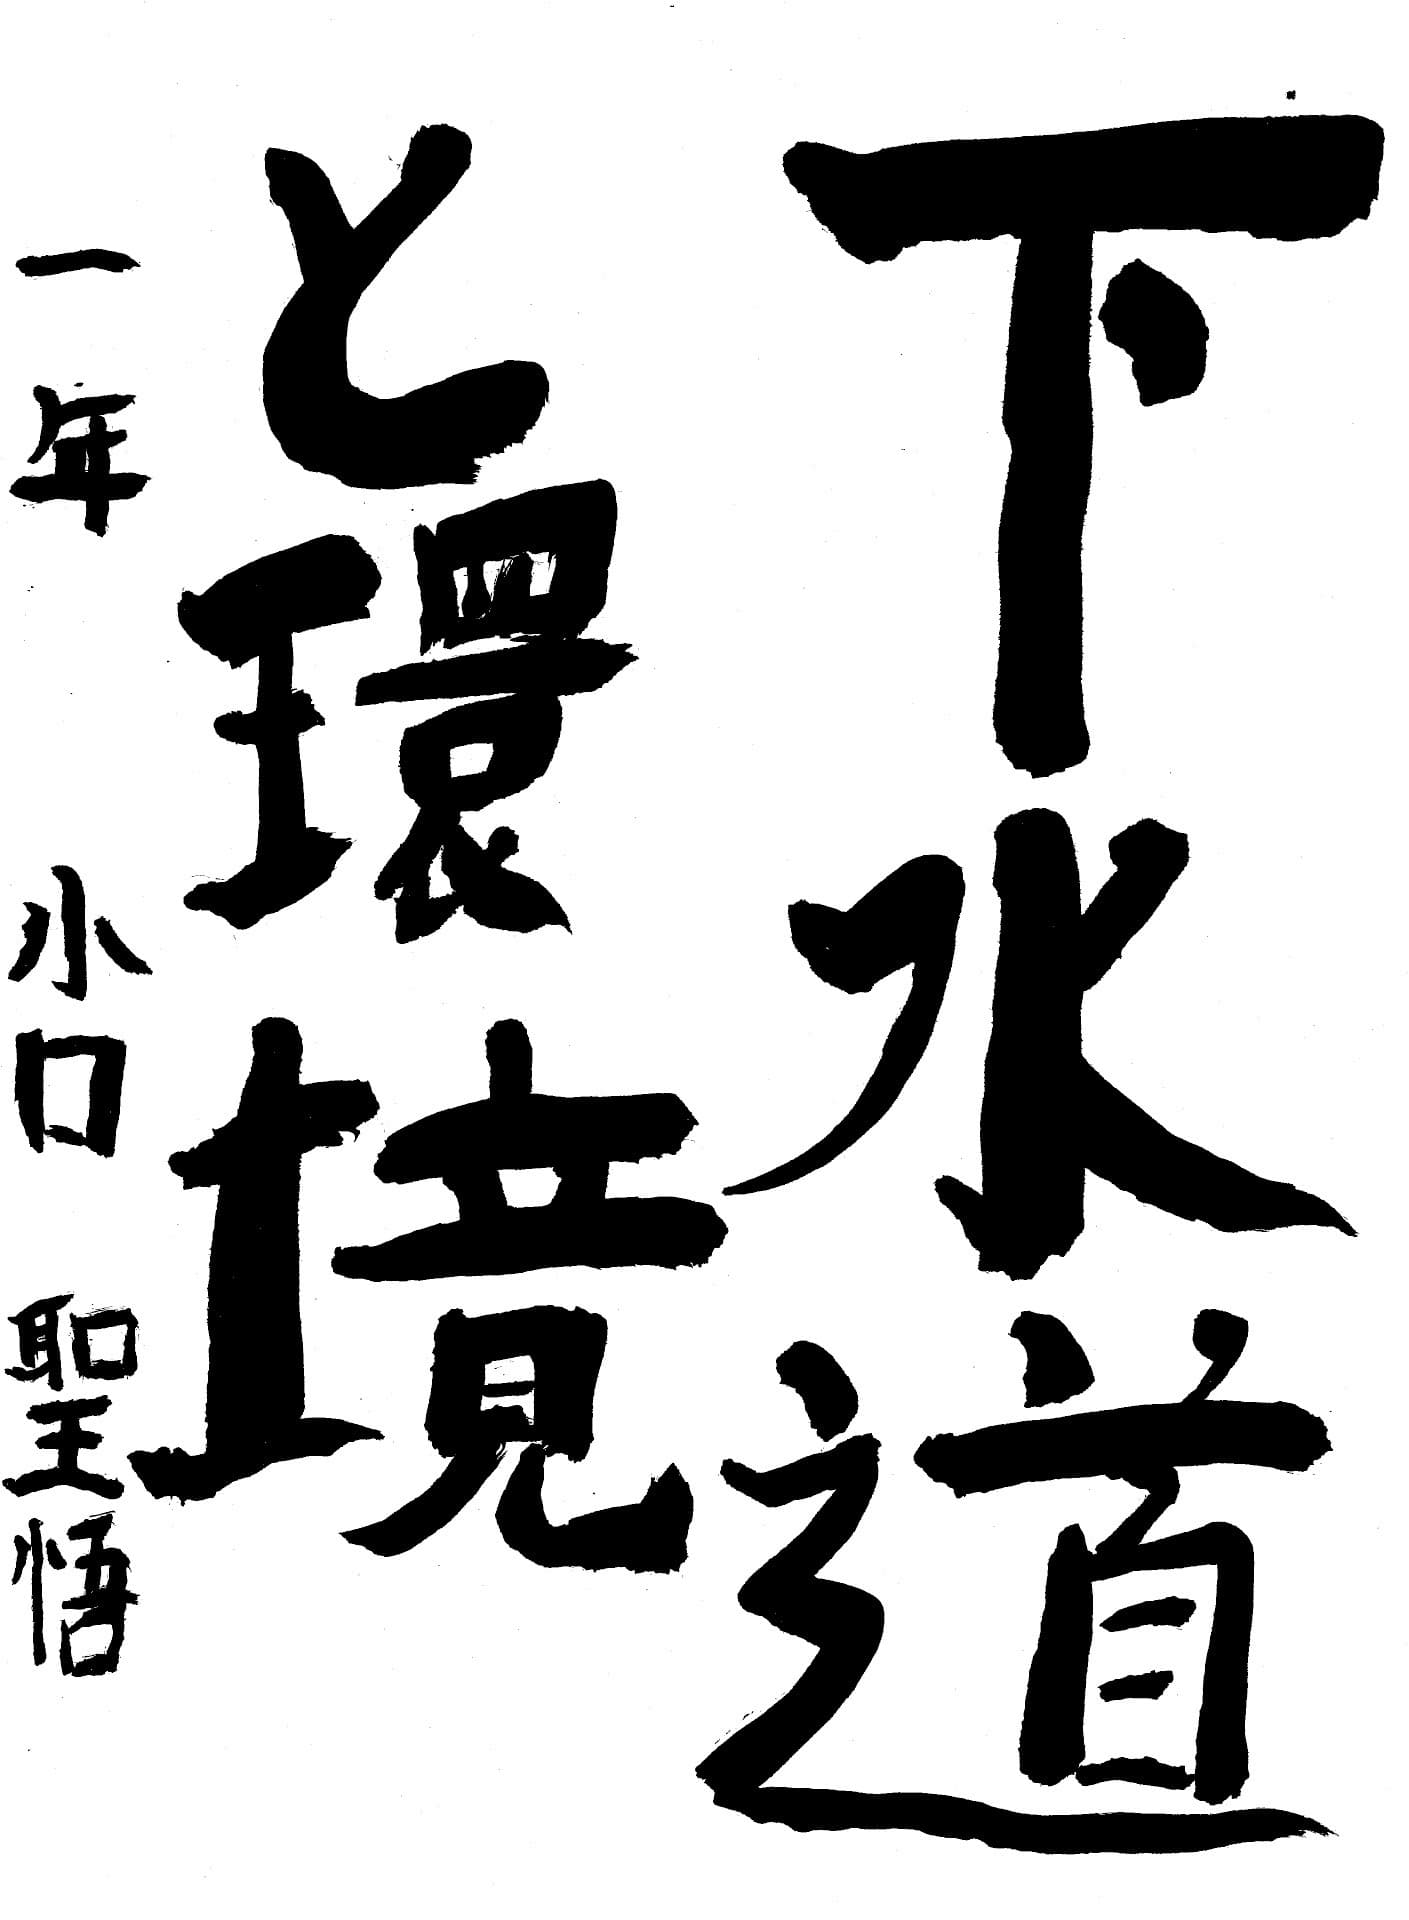 下水道
と環境
一年 小口 聖悟